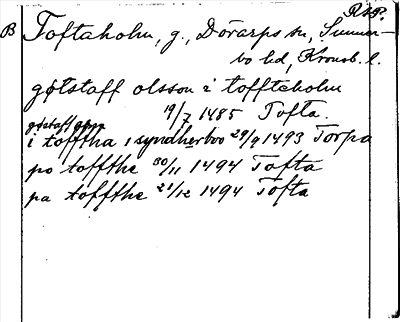 RAP.
B Toftaholm, g., Dörarps sn, Sunner-
bo hd, Kronob. l.
gøtstaff olsson i toffteholm
19/7 1485 Tofta.
gøstaff
i tofftha i syndherboo 29/9 1493 Torpa
po toffthe 30/11 1494 Tofta
pa toffthe 21/12 1494 Tofta